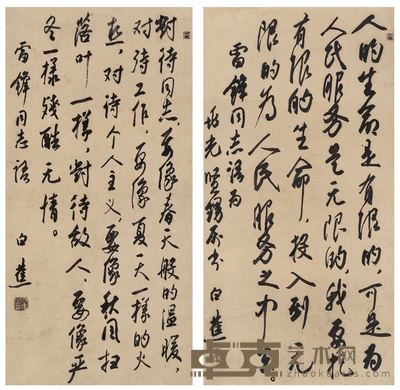 人的生命是有限的,可是为
人民服务是无限的,我要把
有限的生命,投入到无
限的为人民服务之中去。
雷锋同志语为
光贤甥属书 白蕉
對待同志要像春天般的温暖,
对待工作,要像夏天一样的火
热,对待个人主义要像秋风扫
落叶一樣,對待敌人,要像严
冬一樣残酷无情。
雷锋同志语
白蕉
艺术网